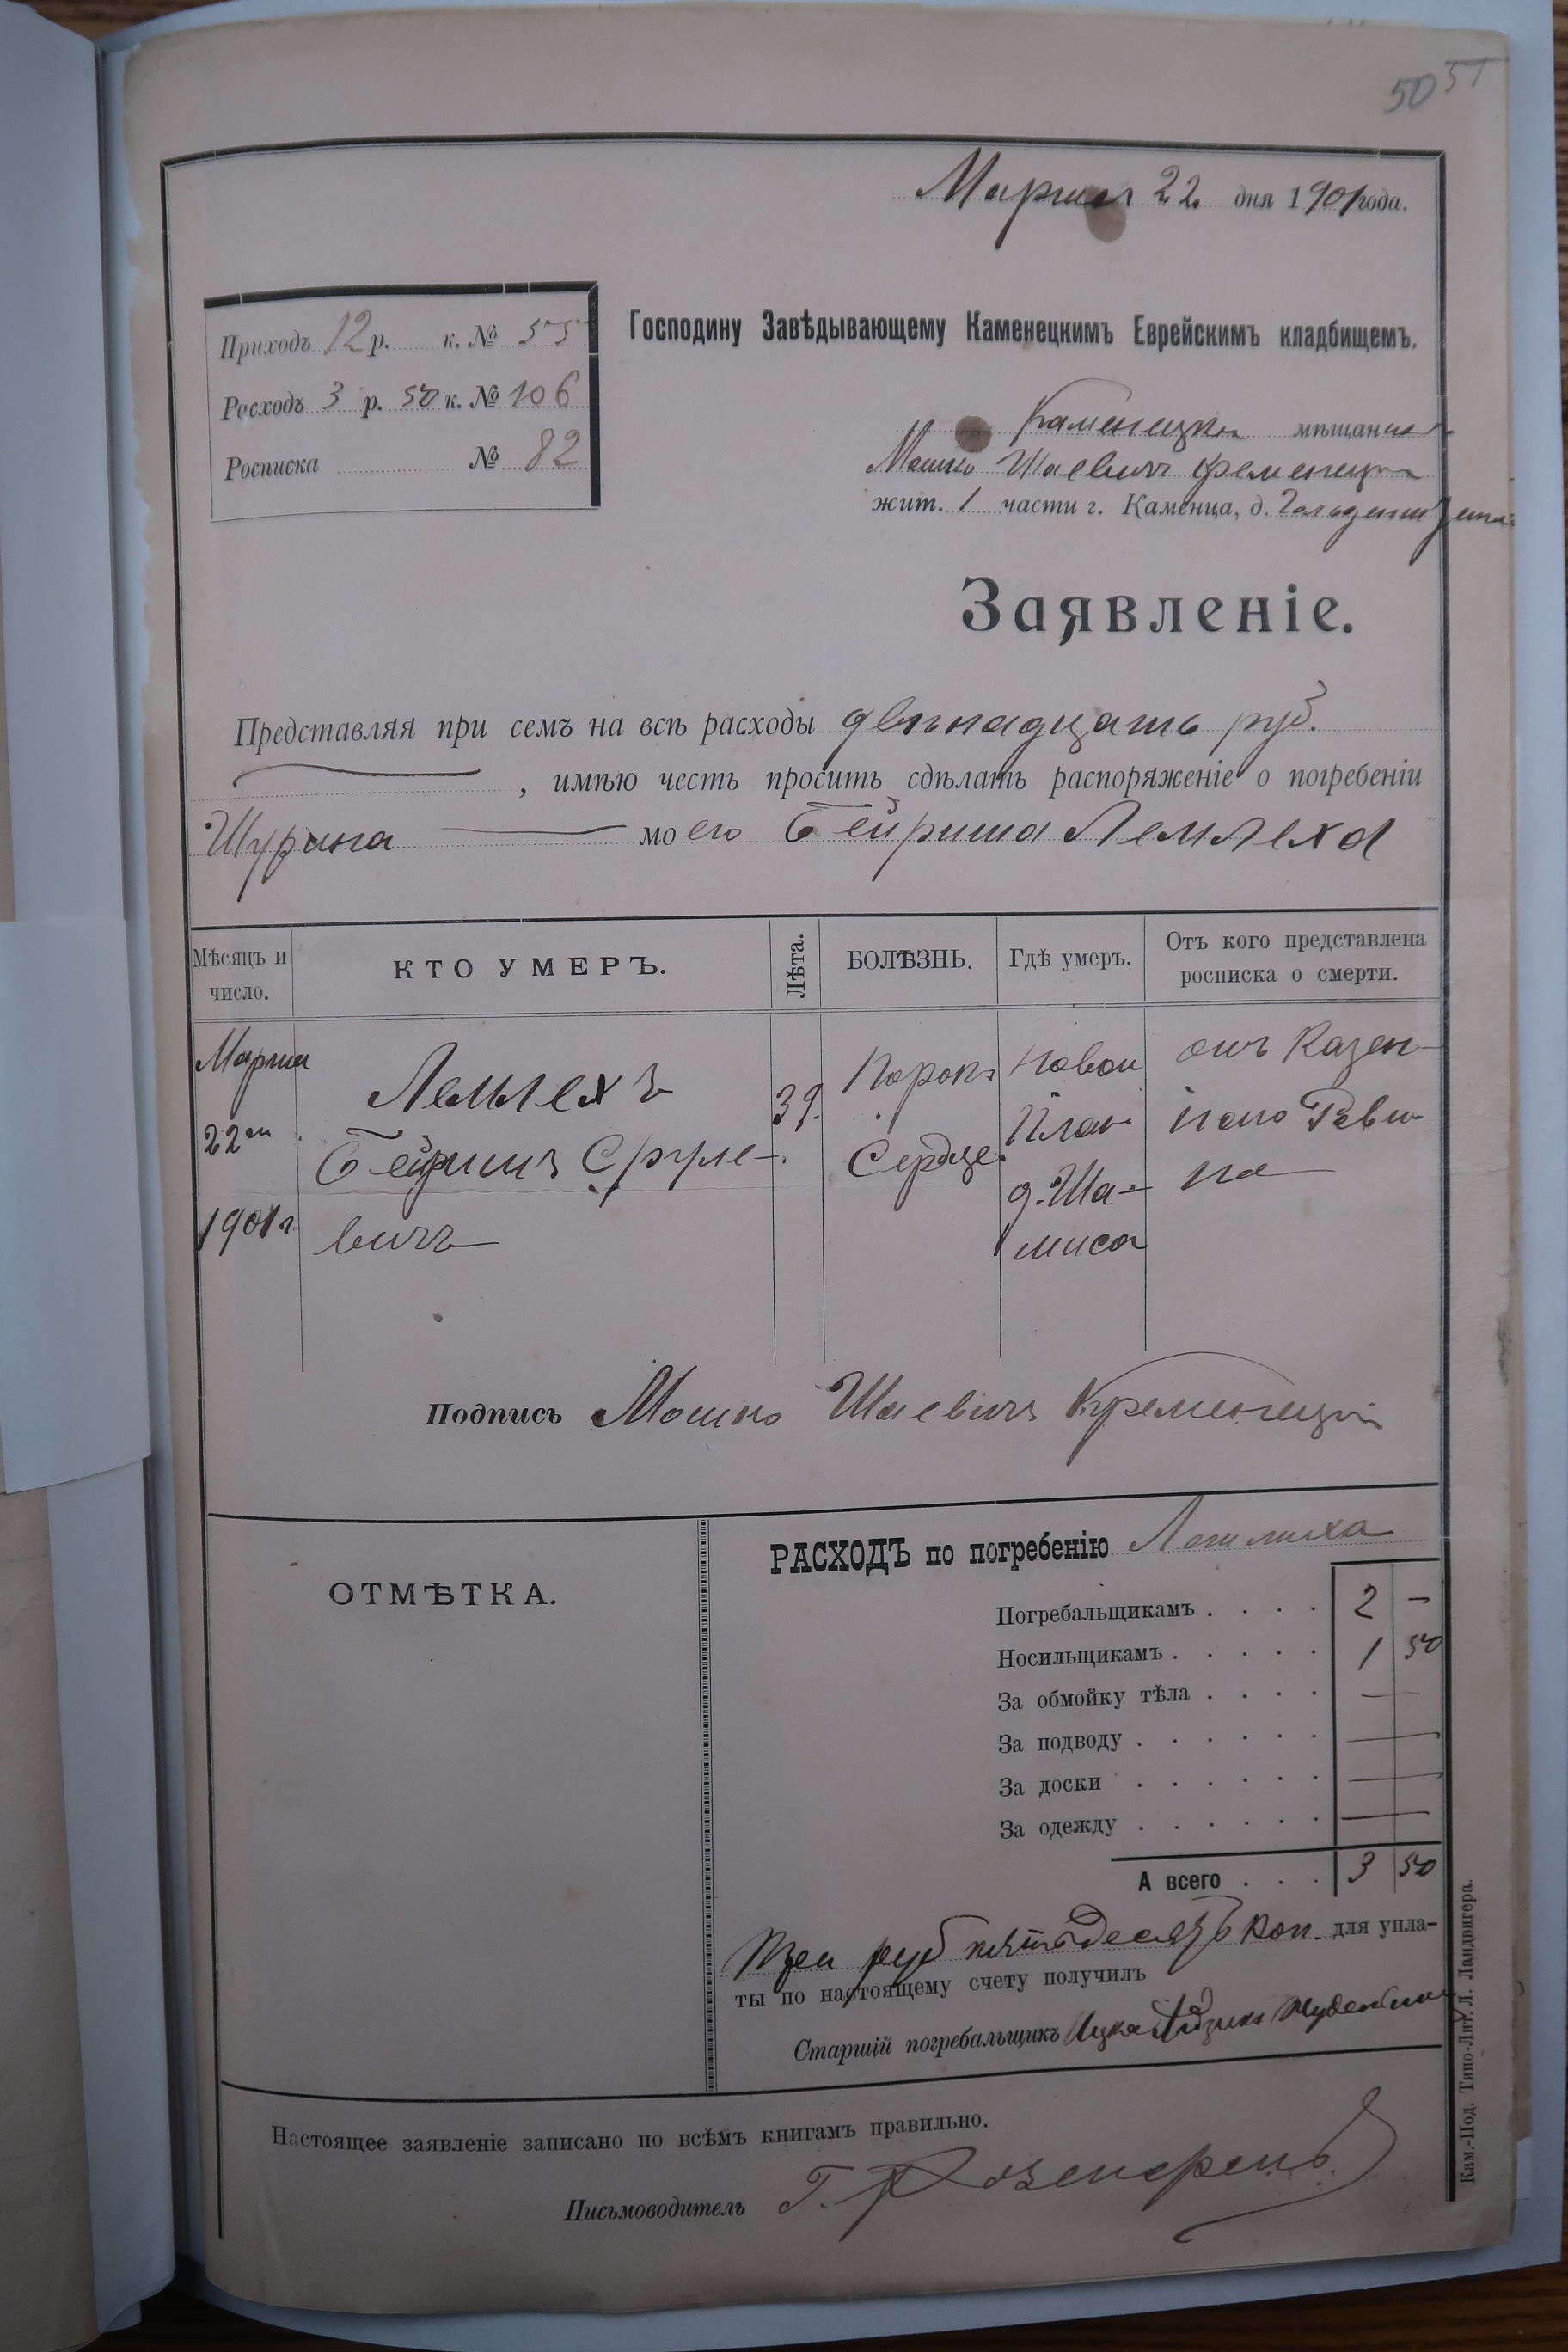 50 51
Марта 22 дня 1901 года.
Приходъ 12 р. к. № 55
Расходъ 3 р. 50 к. № 106
Росписка № 82
Господину Завѣдывающему Каменецкимъ Еврейскимъ кладбищемъ.
Каменецкій мѣщанинъ
Мошко Шаевичъ Кременецкій
жит. 1 части г. Каменца, д.
Заявленіе.
Представляя при семъ на всѣ расходы двѣнадцать руб.
, имѣю честь просить сдѣлать распоряженіе о погребеніи
Шурина моего Бейриша Лемлеха
Мѣсяцъ и число.
КТО УМЕРЪ.
Лѣта.
БОЛѢЗНЬ.
Гдѣ умеръ.
Отъ кого представлена росписка о смерти.
Марта
22го
1901 г.
Лемлехъ
Бейришъ Сруле-
вичъ
39.
Порокъ
Сердца.
Новои
План
д. Ша-
миса
отъ Казен-
наго Рави-
на
Подпись Мошко Шаевичъ Кременецкій
ОТМѢТКА.
РАСХОДЪ по погребенію Лемлиха
Погребальщикамъ . . . . 2 —
Носильщикамъ . . . . . 1 50
За обмойку тѣла . . . . —
За подводу . . . . . . —
За доски . . . . . . —
За одежду . . . . . . —
А всего . . . 3 50
Три руб пятьдесятъ коп. для упла-
ты по настоящему счету получилъ
Старшій погребальщикъ Ицко
Настоящее заявленіе записано по всѣмъ книгамъ правильно.
Письмоводитель Г.
Кам.-Под. Типо-Лит. Л. Ландвигера.